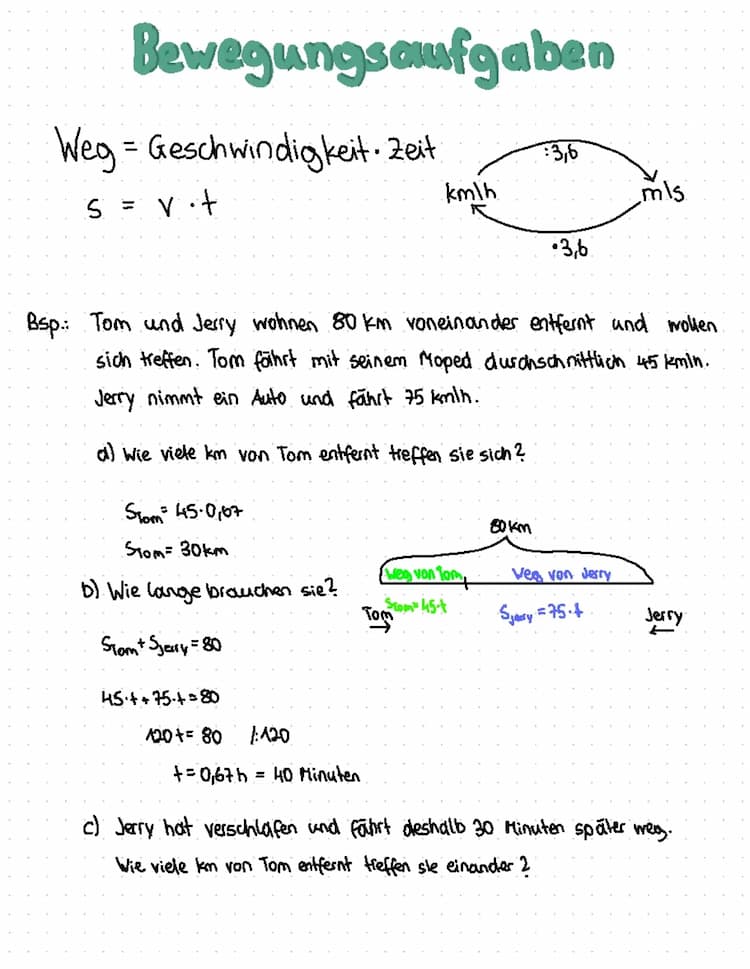 Bewegungsaufgaben
Weg = Geschwindigkeit · Zeit
s = v · t
:3,6
km/h
m/s
·3,6
Bsp.: Tom und Jerry wohnen 80 km voneinander entfernt und wollen
sich treffen. Tom fährt mit seinem Moped durchschnittlich 45 km/h.
Jerry nimmt ein Auto und fährt 75 km/h.
a) Wie viele km von Tom entfernt treffen sie sich?
STom = 45·0,67
STom = 30km
80km
Weg von Tom
Weg von Jerry
STom = 45·t
SJerry = 75·t
Tom
Jerry
b) Wie lange brauchen sie?
STom + SJerry = 80
45·t + 75·t = 80
120t = 80 /:120
t = 0,67h = 40 Minuten
c) Jerry hat verschlafen und fährt deshalb 30 Minuten später weg.
Wie viele km von Tom entfernt treffen sie einander?